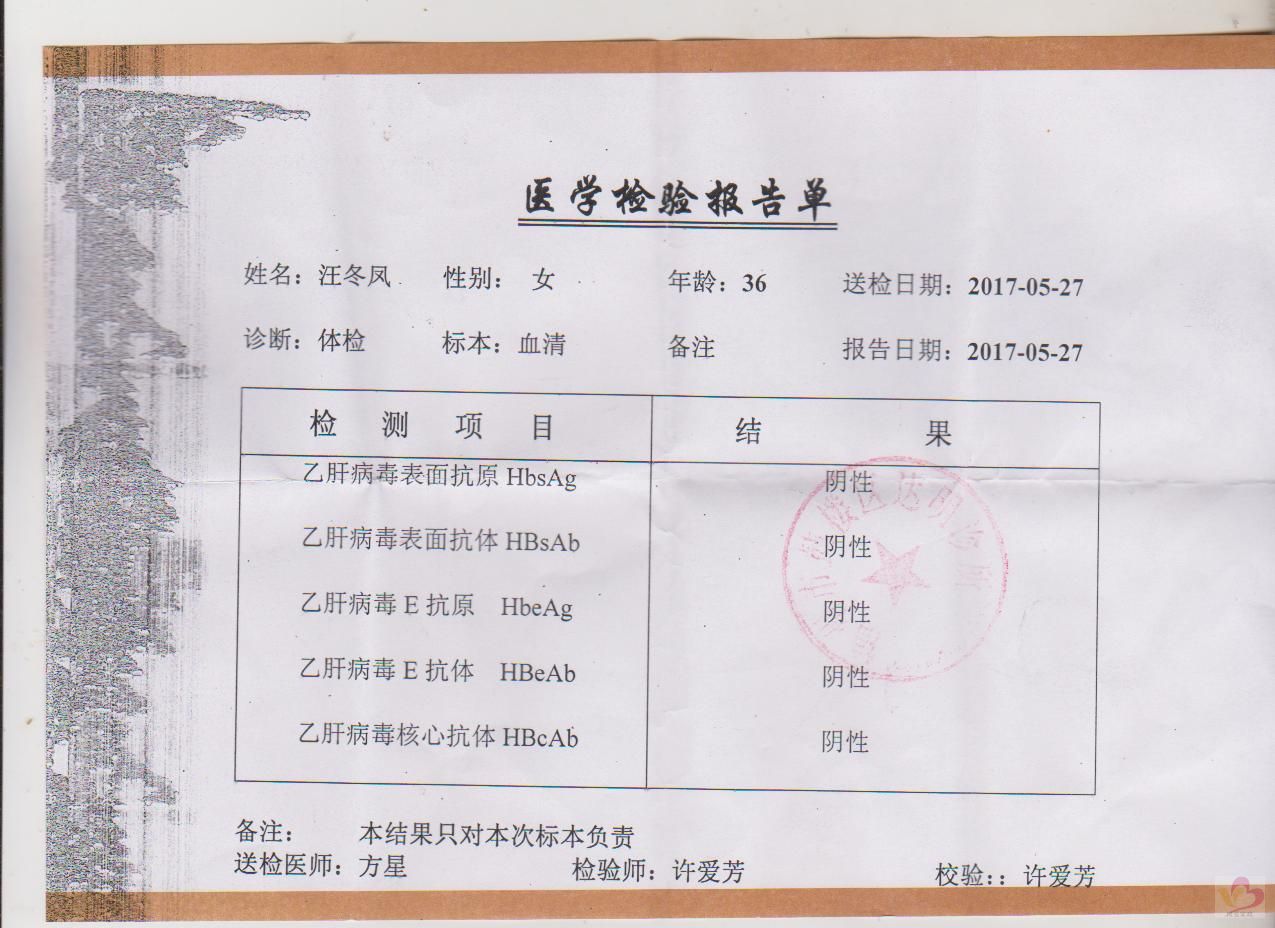 医学检验报告单
姓名：汪冬凤 性别： 女 年龄：36 送检日期：2017-05-27
诊断：体检 标本：血清 备注 报告日期：2017-05-27
检 测 项 目 结 果
乙肝病毒表面抗原 HbsAg 阴性
乙肝病毒表面抗体 HBsAb 阴性
乙肝病毒 E 抗原 HbeAg 阴性
乙肝病毒 E 抗体 HBeAb 阴性
乙肝病毒核心抗体 HBcAb 阴性
备注： 本结果只对本次标本负责
送检医师：方星 检验师：许爱芳 校验：：许爱芳